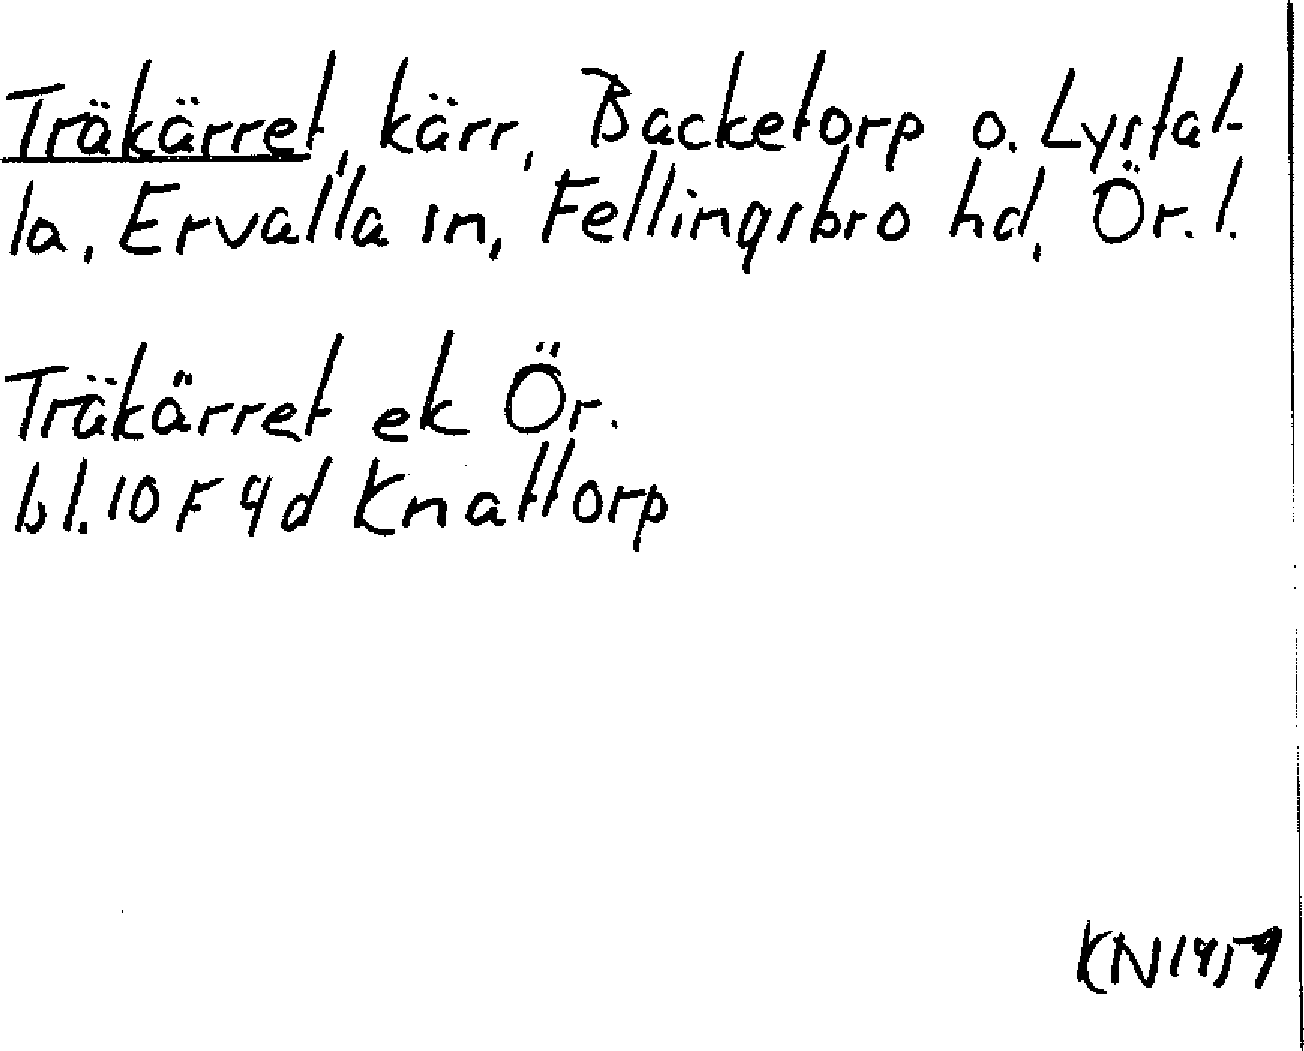 Träkärret, kärr, Backetorp o. Lystal-
la, Ervalla sn, Fellingsbro hd, Ör. l.
Träkärret ek Ör.
bl. 10 F 4d Knattorp
KN1459